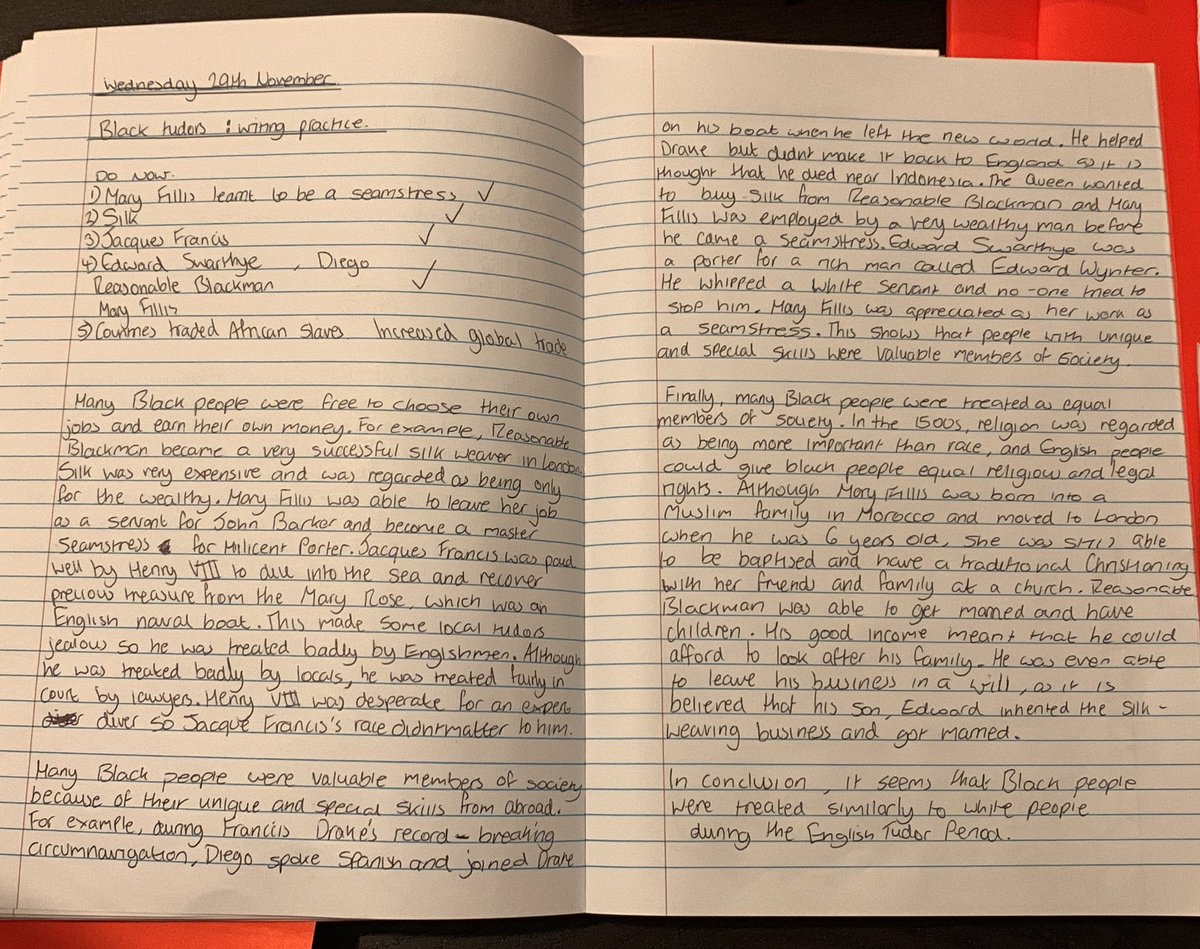 Wednesday 29th November.
Black tudors : wiring practice.
DO NOW.
1) Mary Fillis learnt to be a seamstress ✓
2) Silk ✓
3) Jacques Francis ✓
4) Edward Swarthye , Diego ✓
Reasonable Blackman
Mary Fillis
5) Countries traded African slaves Increased global trade
Many Black people were free to choose their own
jobs and earn their own money. For example, Reasonable
Blackman became a very successful silk weaver in London.
Silk was very expensive and was regarded as being only
for the wealthy. Mary Fillis was able to leave her job
as a servant for John Barker and become a master
seamstress for Milicent Porter. Jacques Francis was paid
well by Henry VIII to dive into the sea and recover
precious treasure from the Mary Rose, which was an
English naval boat. This made some local tudors
jealous so he was treated badly by Englishmen. Although
he was treated badly by locals, he was treated fairly in
court by lawyers. Henry VIII was desperate for an expert
diver so Jacque Francis's race didnt matter to him.
Many Black people were valuable members of society
because of their unique and special skills from abroad.
For example, during Francis Drake's record - breaking
circumnavigation, Diego spoke Spanish and joined Drake
on his boat when he left the new world. He helped
Drake but didnt make it back to England so it is
thought that he died near Indonesia. The Queen wanted
to buy silk from Reasonable Blackman and Mary
Fillis was employed by a very wealthy man before
he came a seamstress. Edward Swarthye was
a porter for a rich man called Edward Wynter.
He whipped a white servant and no-one tried to
stop him. Mary Fillis was appreciated as her work as
a seamstress. This shows that people with unique
and special skills were valuable members of society.
Finally, many Black people were treated as equal
members of society. In the 1500s, religion was regarded
as being more important than race, and English people
could give black people equal religious and legal
rights. Although Mary Fillis was born into a
Muslim family in Morocco and moved to London
when he was 6 years old, she was still able
to be baptised and have a traditional Christioning
with her friends and family at a church. Reasonable
Blackman was able to get married and have
children. His good income meant that he could
afford to look after his family. He was even able
to leave his business in a will, as it is
believed that his son, Edward inherited the silk-
weaving business and got married.
In conclusion, it seems that Black people
were treated similarly to white people
during the English Tudor Period.